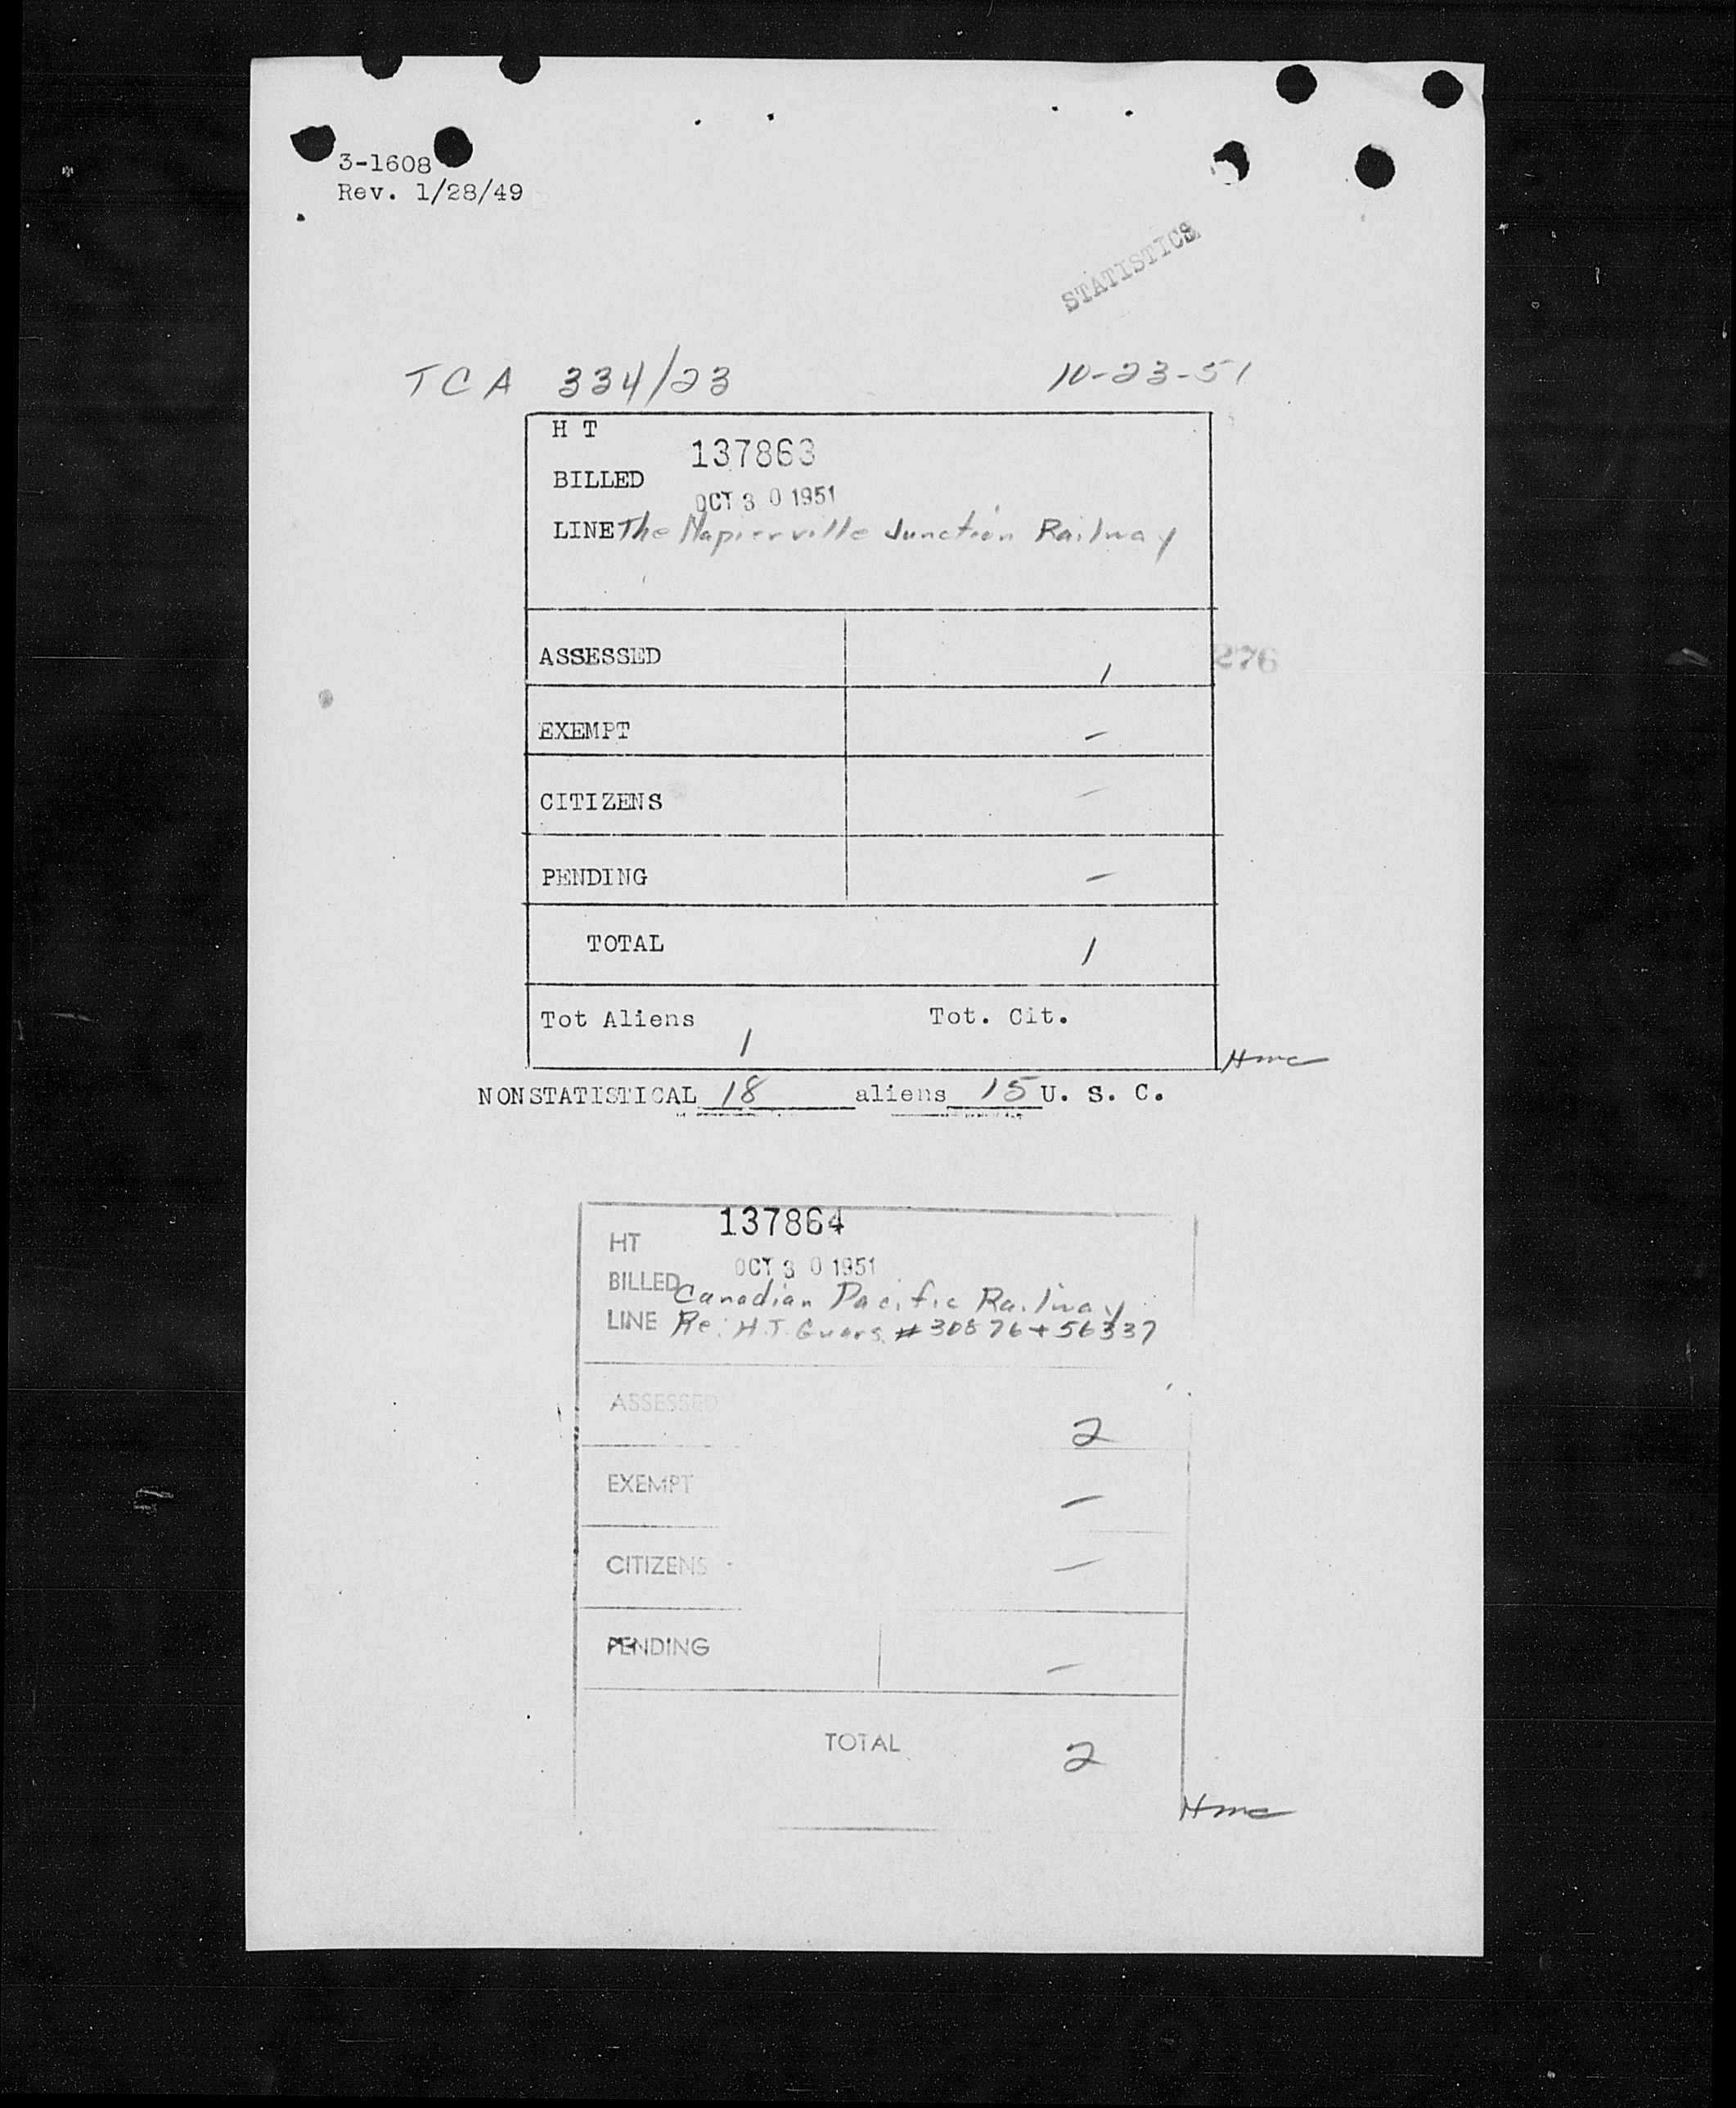 3-1608
Rev. 1/28/49
STATISTICS
TCA 334/23 10-23-51
H T
137863
BILLED
OCT 30 1951
LINE The Napierville Junction Railway
ASSESSED 1
276
EXEMPT -
CITIZENS -
PENDING -
TOTAL 1
Tot Aliens 1 Tot. Cit.
Hmc
NONSTATISTICAL 18 aliens 15 U. S. C.
137864
HT
OCT 30 1951
BILLED Canadian Pacific Railway
LINE Re: H.T. Guars. # 30876 + 56337
ASSESSED 2
EXEMPT -
CITIZENS -
PENDING -
TOTAL 2
Hmc